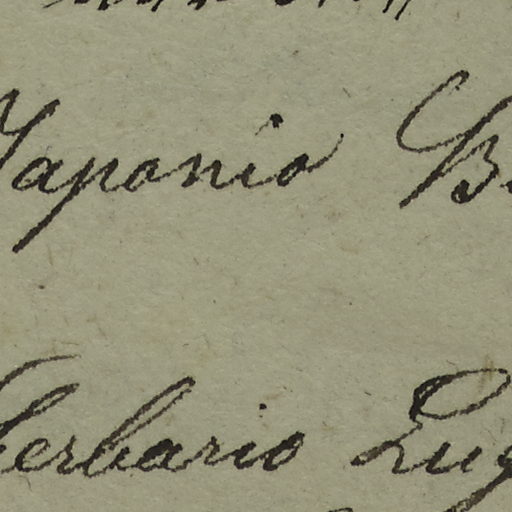 Japonia B
Herbario Lug